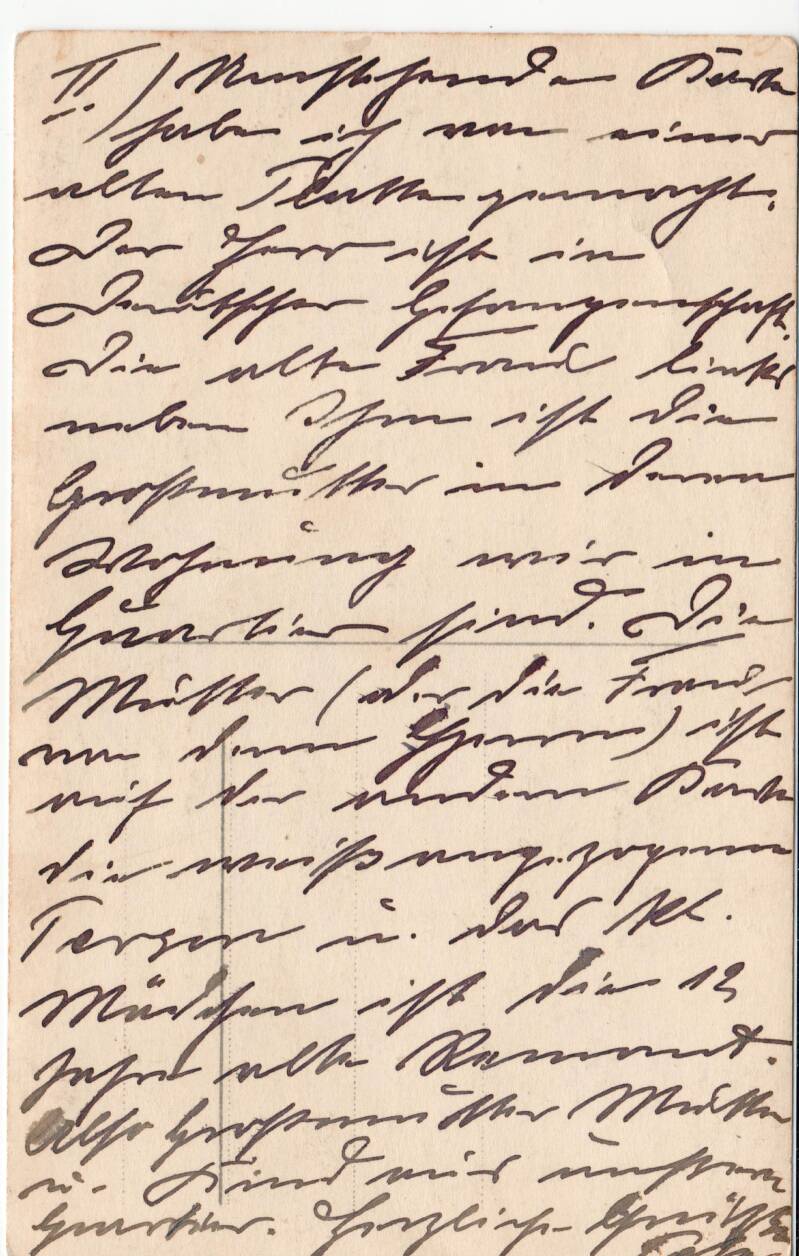 II.) Umstehende Karte
habe ich von einer
alten Platte gemacht.
Der Herr ist in
Deutscher Gefangenschaft.
Die alte Frau links
neben Ihm ist die
Großmutter in deren
Wohnung wir in
Quartier sind. Die
Mutter (oder die Frau
von dem Herrn) ist
auf der andern Karte
die weiß angezogene
Person u. das kl.
Mädchen ist die 12
Jahre alte
Also Großmutter Mutter
u. Kind aus unserem
Quartier. Herzliche Grüße